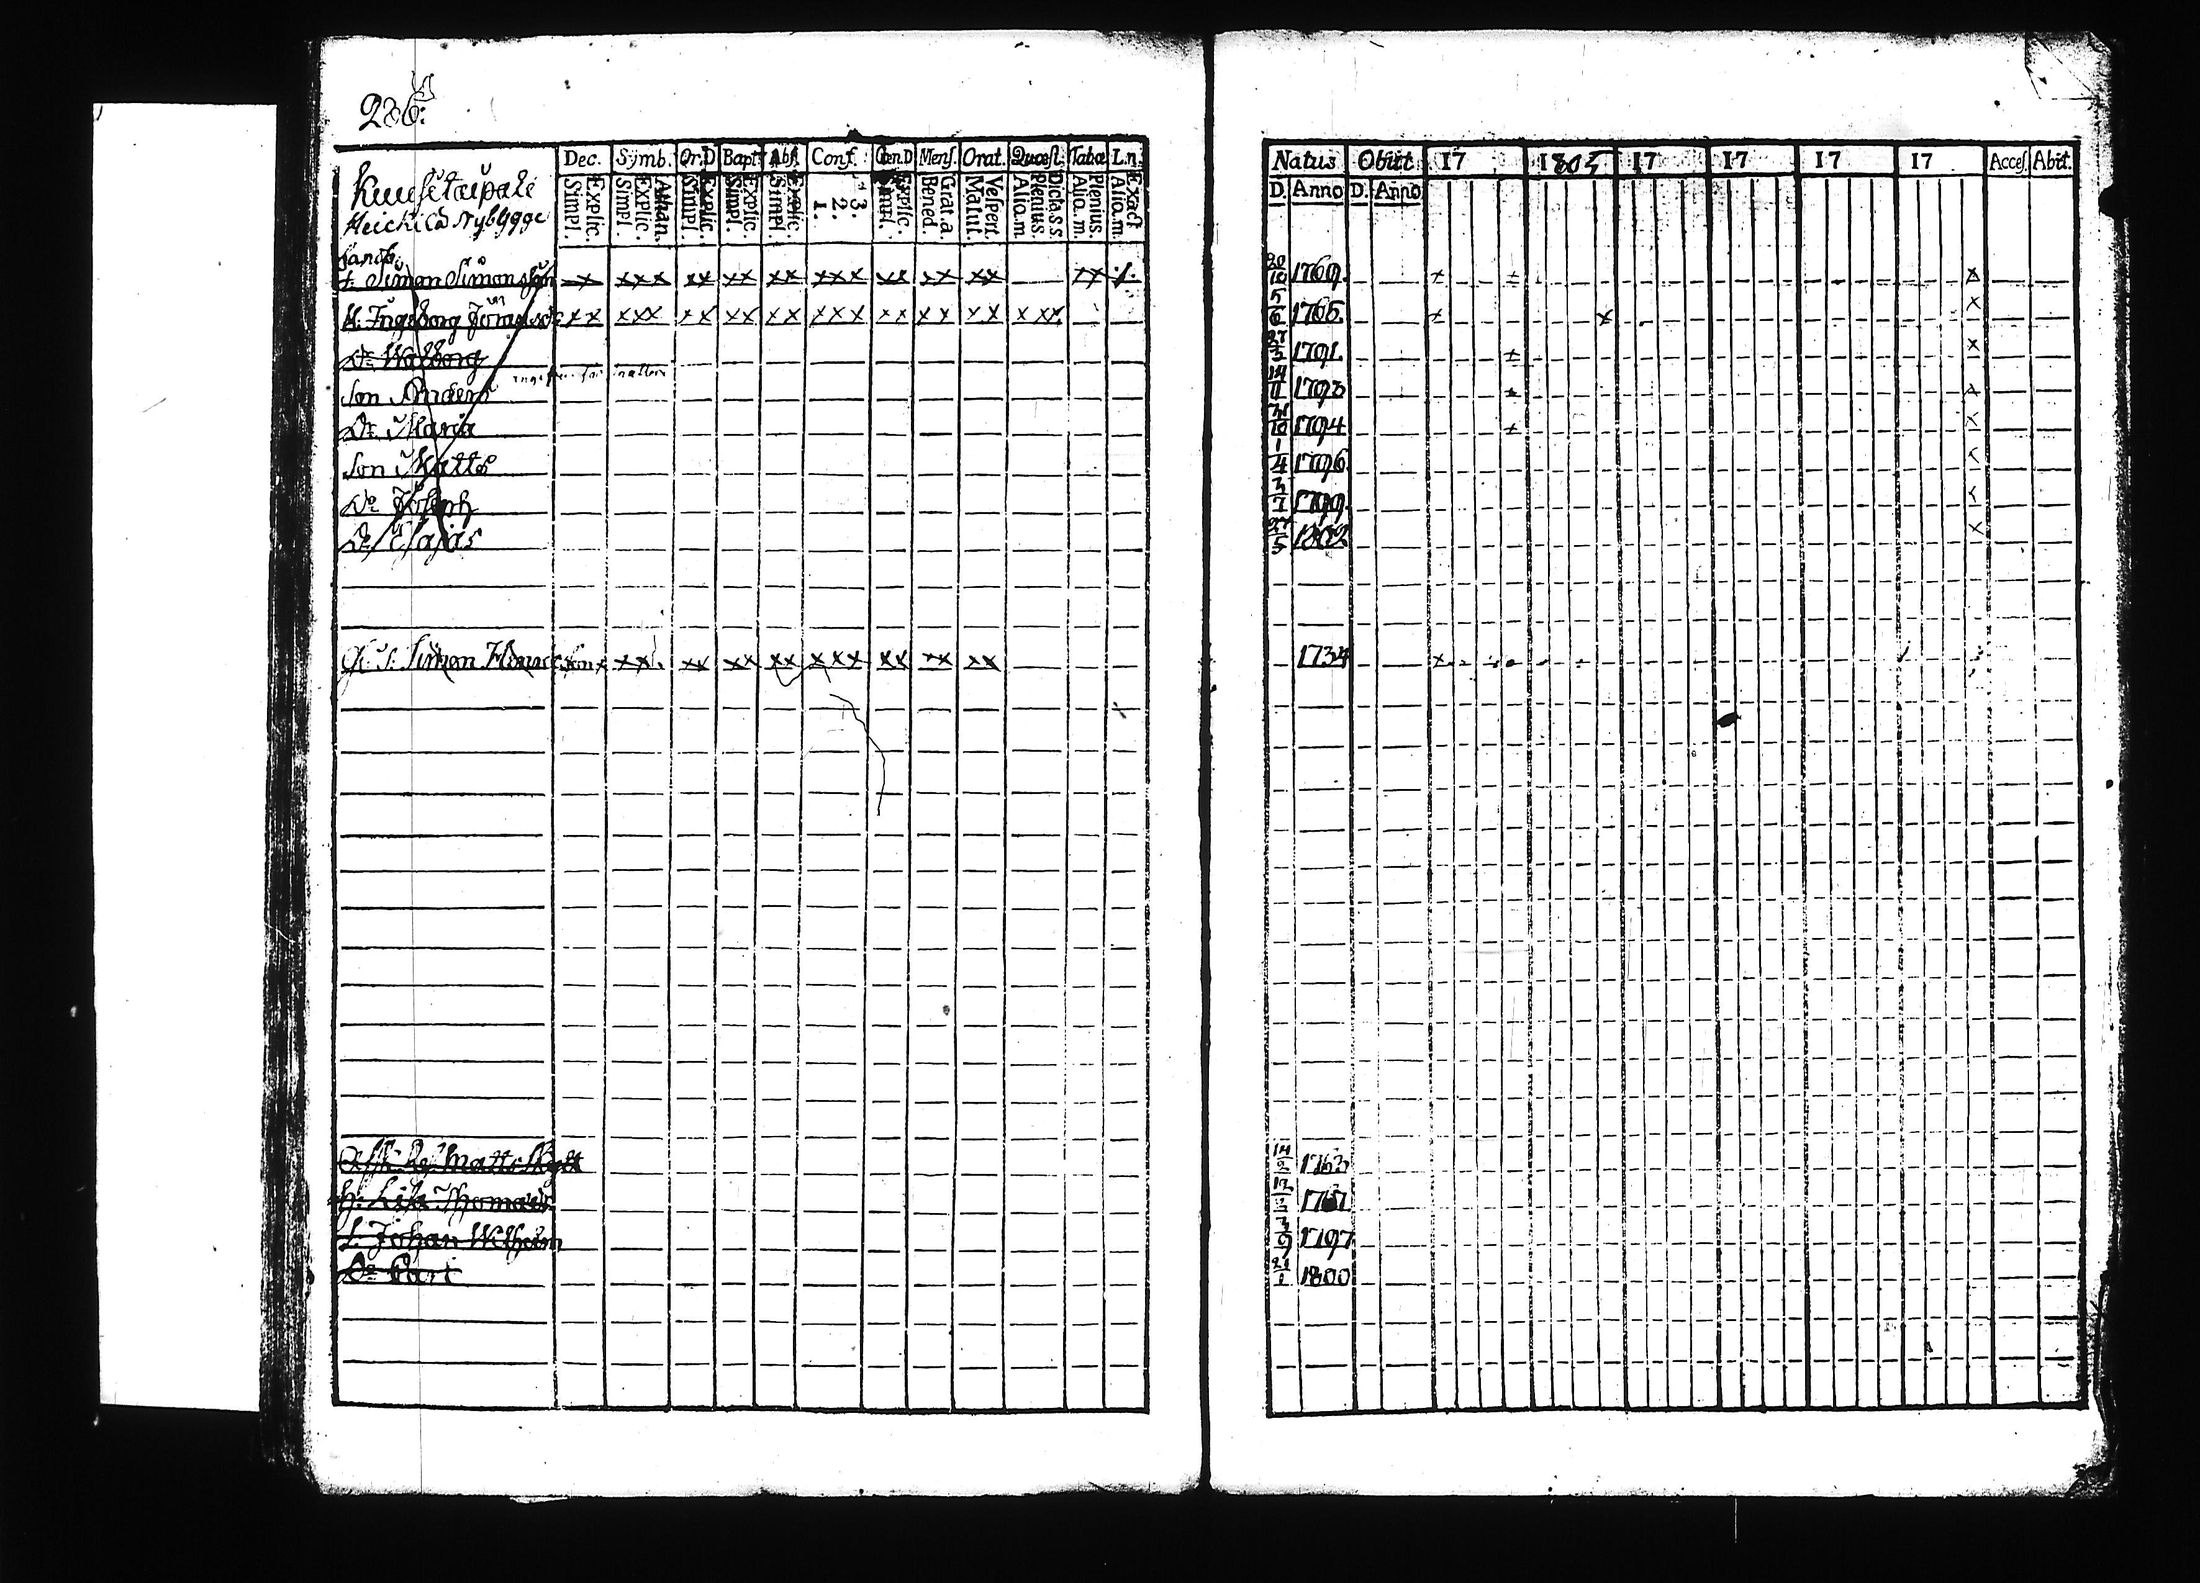 286:
Dec. Symb. Or.D Bapt. Abs. Conf. Cœn.D Mens. Orat. Quæst. Tabœ L.n.
Simpl. Explic. Simpl. Explic. Athan. Simpl. Explic. Simpl. Explic. Simpl. Explic. 1. 2. 3. Simpl. Explic. Bened. Grat.a. Matut. Vespert. Alio.m. Plenius. Dicta.s.s. Alio.m. Plenius. Alio.m. Exact
Heickilä Nybygge
t. Simon Simonsson xx xxx xx xx xx xxx xx xx xx xx
H. Ingeborg xx xxx xx xx xx xxx xx xx xx x xx
Dr Walborg
Son Anders
Dr Maria
Son Matts
Do Joseph
Do Esajas
Simon xx xx xx xx xxx xx xx xx
Matts
h: Lisa Thomasdr
S. Johan Wilhelm
Do Carl
Natus Obiit 17 1805 17 17 17 17 Acces. Abit.
D. Anno D. Anno
20/10 1769.
5/6 1765.
27/3 1791.
14/11 1793
1794
1/4 1796
3/7 1799.
27/5 1802
1734
14/2 1763
12 1767
3/9 1797
1800